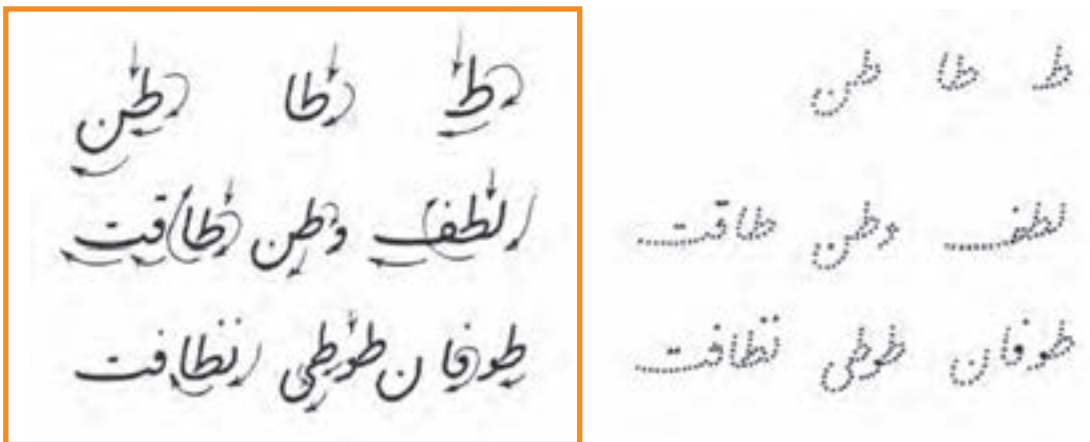 ط طا طن
لطف وطن طاقت
طوفان طوطی نظافت
ط طا طن
لطف وطن طاقت
طوفان طوطی نظافت